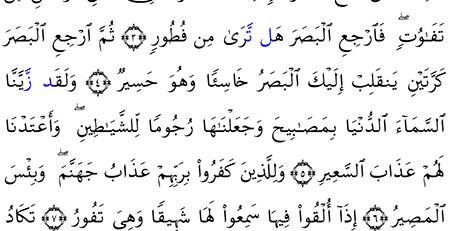 تَفَٰوُتٖۖ فَٱرۡجِعِ ٱلۡبَصَرَ هَل تَّرَىٰ مِن فُطُورٖ ﴿٣﴾ ثُمَّ ٱرۡجِعِ ٱلۡبَصَرَ
كَرَّتَيۡنِ يَنقَلِبۡ إِلَيۡكَ ٱلۡبَصَرُ خَاسِئٗا وَهُوَ حَسِيرٞ ﴿٤﴾ وَلَقَد زَّيَّنَّا
ٱلسَّمَآءَ ٱلدُّنۡيَا بِمَصَٰبِيحَ وَجَعَلۡنَٰهَا رُجُومٗا لِّلشَّيَٰطِينِۖ وَأَعۡتَدۡنَا
لَهُمۡ عَذَابَ ٱلسَّعِيرِ ﴿٥﴾ وَلِلَّذِينَ كَفَرُواْ بِرَبِّهِمۡ عَذَابُ جَهَنَّمَۖ وَبِئۡسَ
ٱلۡمَصِيرُ ﴿٦﴾ إِذَآ أُلۡقُواْ فِيهَا سَمِعُواْ لَهَا شَهِيقٗا وَهِيَ تَفُورُ ﴿٧﴾ تَكَادُ